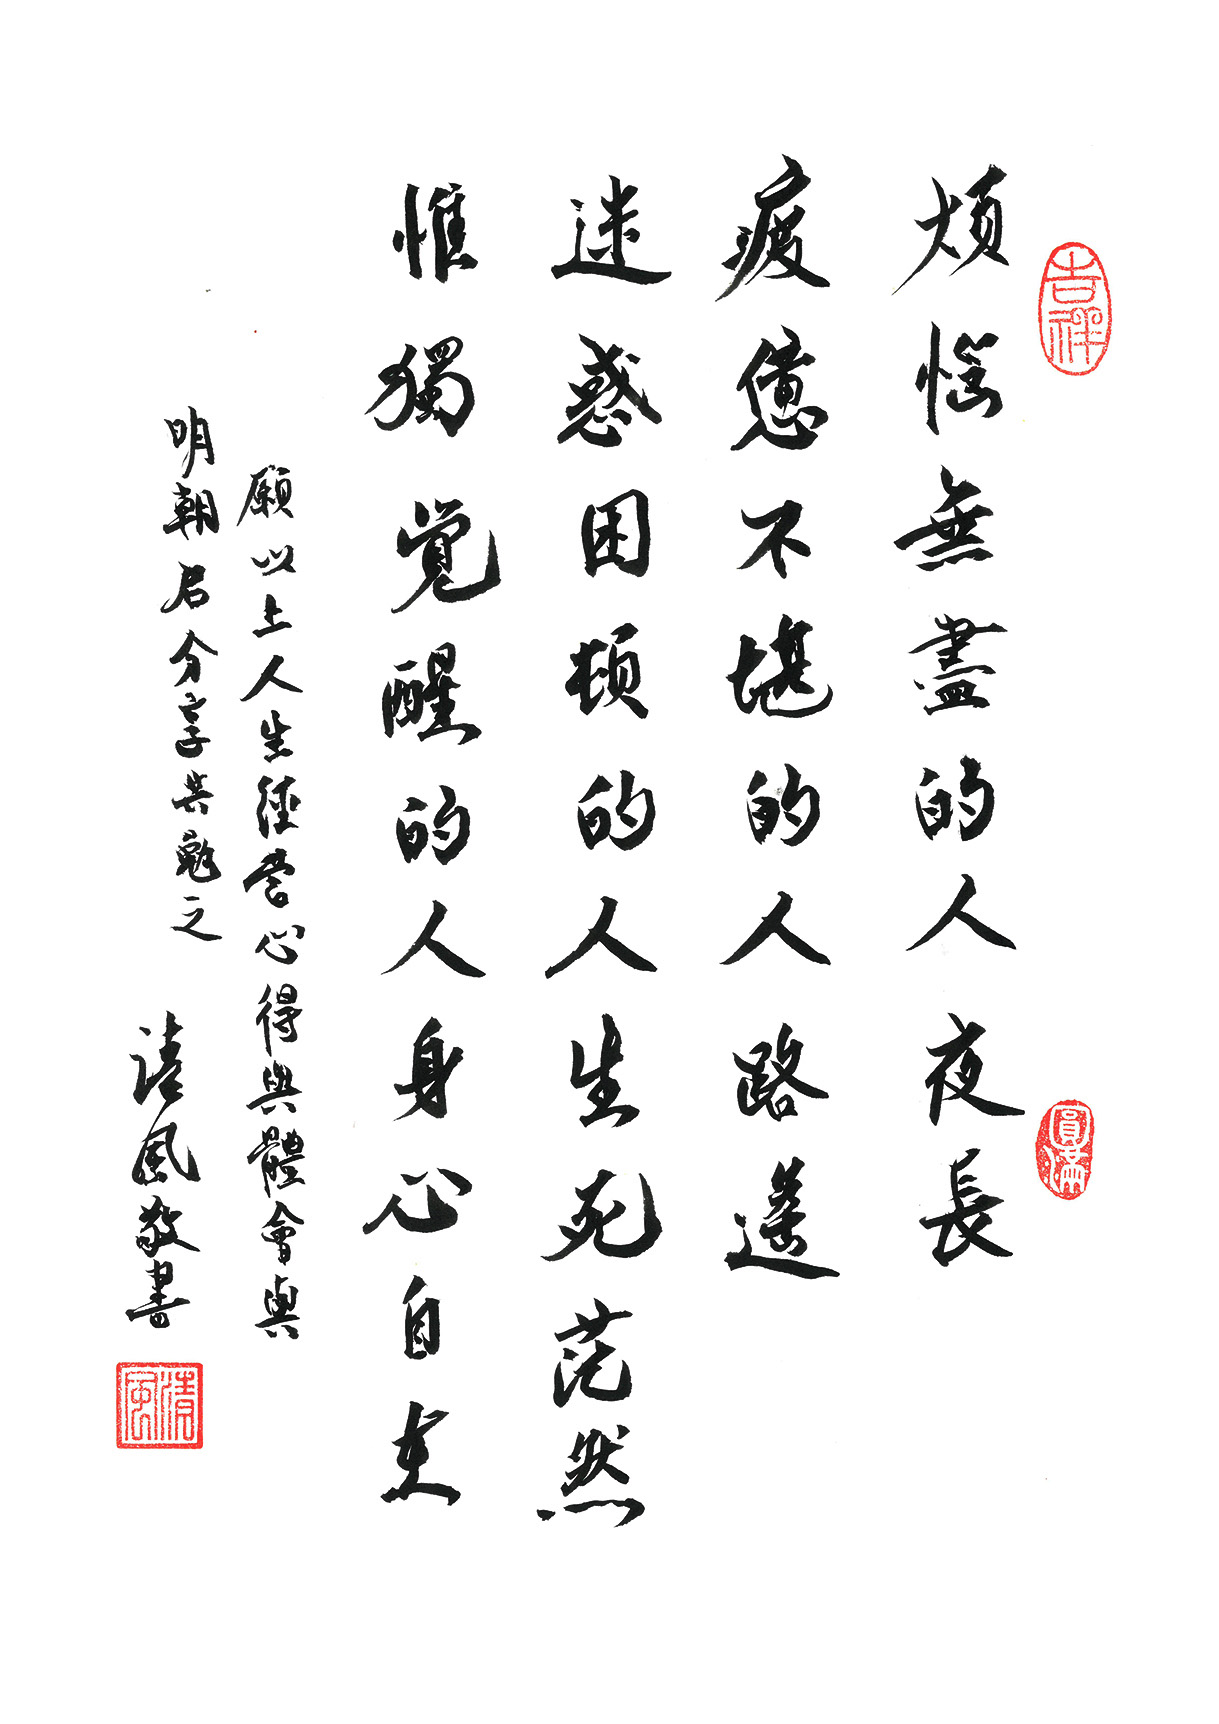 吉祥
煩惱無盡的人夜長
疲憊不堪的人路遙
迷惑困頓的人生死茫然
惟獨覺醒的人身心自在
願以上人生經營心得與體會與
明朝君分享共勉之
清風敬書
圓滿
清風